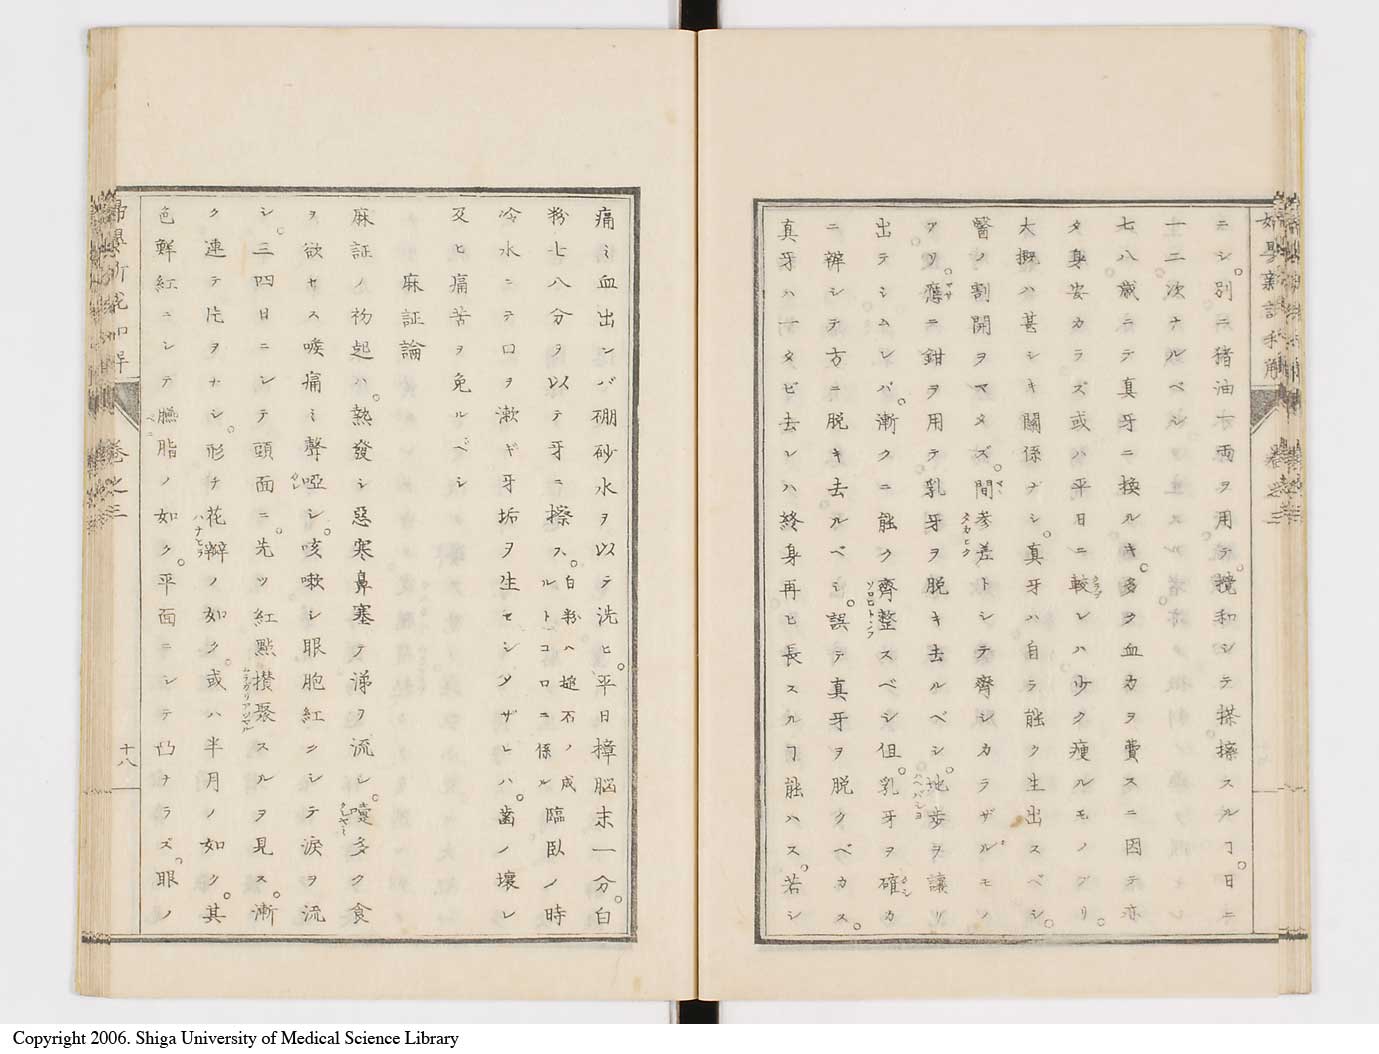 ニシ。別ニ猪油六両ヲ用テ。攪和シテ搽擦スルヿ。日ニ
一二次ナルベシ
七八歳ニテ真牙ニ換ルキ。多ク血力ヲ費スニ因テ亦
タ身安カラズ或ハ平日ニ較レハ少ク痩ルモノアリ。
大概ハ甚シキ關係ナシ。真牙ハ自ラ能ク生出スベシ。
醫ノ割開ヲマタズ。間参差トシテ齊シカラザルモノ
アリ。應ニ鉗ヲ用テ乳牙ヲ脱キ去ルベシ。地歩ヲ讓リ
出テシムレバ。漸クニ能ク齊整スベシ但。乳牙ヲ確カ
ニ辨シテ方ニ脱キ去ルベシ。誤テ真牙ヲ脱クベカス。
真牙ハ一タビ去レハ終身再ヒ長スルヿ能ハス。若シ
痛ミ血出レバ硼砂水ヲ以テ洗ヒ。平日樟脳末一分。白
粉七八分ヲ以テ牙ニ擦ス。白粉ハ䃃石ノ成ルトコロニ係ル臨臥ノ時
冷水ニテ口ヲ漱ギ牙垢ヲ生セシメザレハ。齒ノ壞レ
及ヒ痛苦ヲ免ルベシ
麻証論
麻証ノ初起ハ。熱發シ惡寒鼻塞テ涕ヲ流シ。嚏多ク食
ヲ欲セス喉痛ミ聲啞シ。咳嗽シ眼胞紅ニシテ涙ヲ流
シ。三四日ニシテ頭面ニ。先ツ紅點攅聚スルヲ見ス。漸
ク連テ片ヲナシ。形チ花瓣ノ如ク。或ハ半月ノ如ク。其
色鮮紅ニシテ臙脂ノ如ク。平面ニシテ凸ナラズ。眼ノ
巻之三
十八
Copyright 2006. Shiga University of Medical Science Library